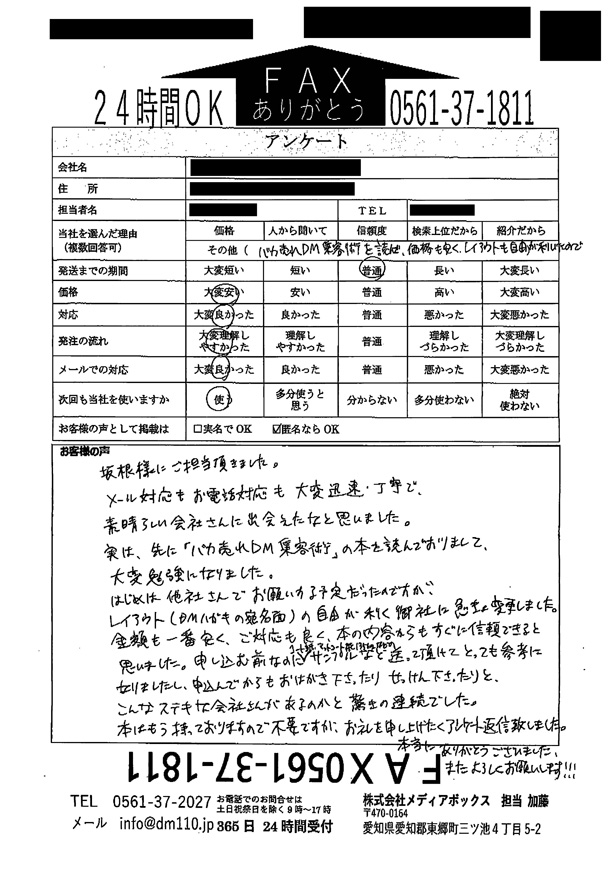 FAX
ありがとう
24時間OK 0561-37-1811
アンケート
会社名
住 所
担当者名 TEL
当社を選んだ理由（複数回答可） 価格 人から聞いて 信頼度 検索上位だから 紹介だから
その他（ バカ売れDM集客術を読せば、価格も安く、レイアウトも自由が利いたので
発送までの期間 大変短い 短い 普通 長い 大変長い
価格 大変安い 安い 普通 高い 大変高い
対応 大変良かった 良かった 普通 悪かった 大変悪かった
発注の流れ 大変理解しやすかった 理解しやすかった 普通 理解しづらかった 大変理解しづらかった
メールでの対応 大変良かった 良かった 普通 悪かった 大変悪かった
次回も当社を使いますか 使う 多分使うと思う 分からない 多分使わない 絶対使わない
お客様の声として掲載は □実名でOK ☑匿名ならOK
お客様の声
坂根様にご担当頂きました。
メール対応もお電話対応も大変迅速・丁寧で、
素晴らしい会社さんに出会えたなと思いました。
実は、先に「バカ売れDM集客術」の本を読んでおりまして、
大変勉強になりました。
はじめは他社さんでお願いする予定だったのですが、
レイアウト（DMハガキの宛名面）の自由が利く御社に急きょ変更しました。
金額も一番安く、ご対応も良く、本の内容からもすぐに信頼できると
思いました。申し込む前なのにサンプルなど送って頂けてとっても参考に
なりましたし、申込んでからもおはがき下さったり せっけん下さったりと、
こんなステキな会社さんがあるのかと驚きの連続でした。
本はもう持っておりますので不要ですが、お礼を申し上げたくアンケート返信致しました。
本当にありがとうございました、
またよろしくお願いします!!!
FAX0561-37-1811
TEL 0561-37-2027 お電話でのお問合せは土日祝祭日を除く9時～17時
メール info@dm110.jp 365日 24時間受付
株式会社メディアボックス 担当 加藤
〒470-0164
愛知県愛知郡東郷町三ツ池4丁目5-2